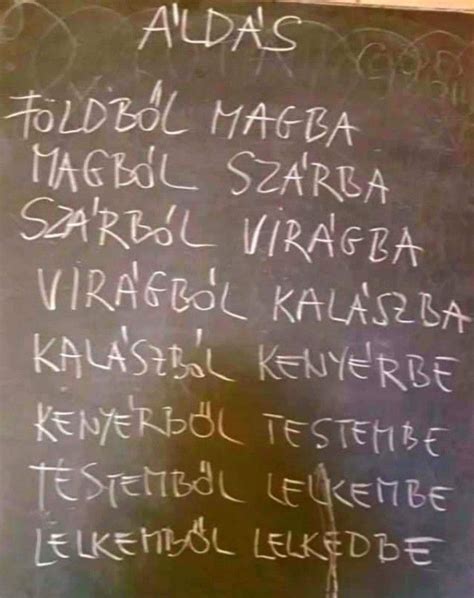 ÁLDÁS
FÖLDBŐL MAGBA
MAGBÓL SZÁRBA
SZÁRBÓL VIRÁGBA
VIRÁGBÓL KALÁSZBA
KALÁSZBÓL KENYÉRBE
KENYÉRBŐL TESTEMBE
TESTEMBŐL LELKEMBE
LELKEMBŐL LELKEDBE